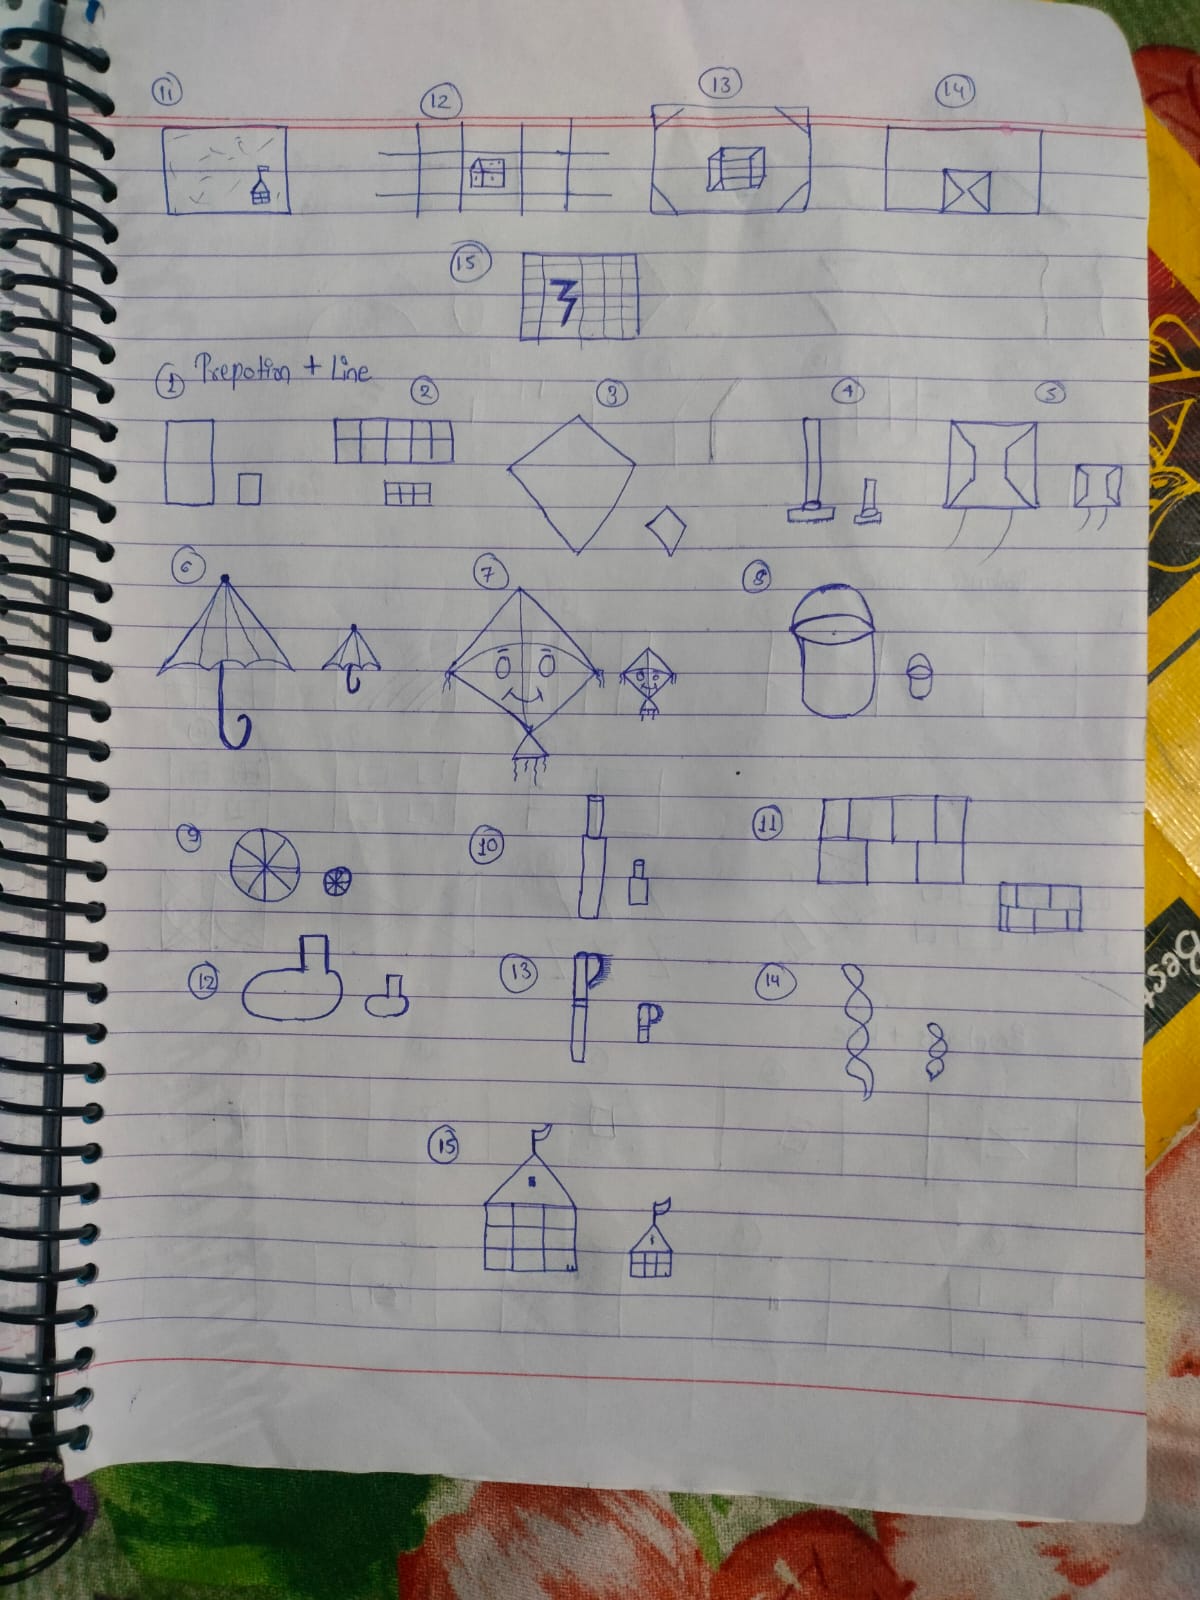 11 12 13 14
15
Prepotion + Line
1 2 3 4 5
6 7 8
9 10 11
12 13 14
15
Best